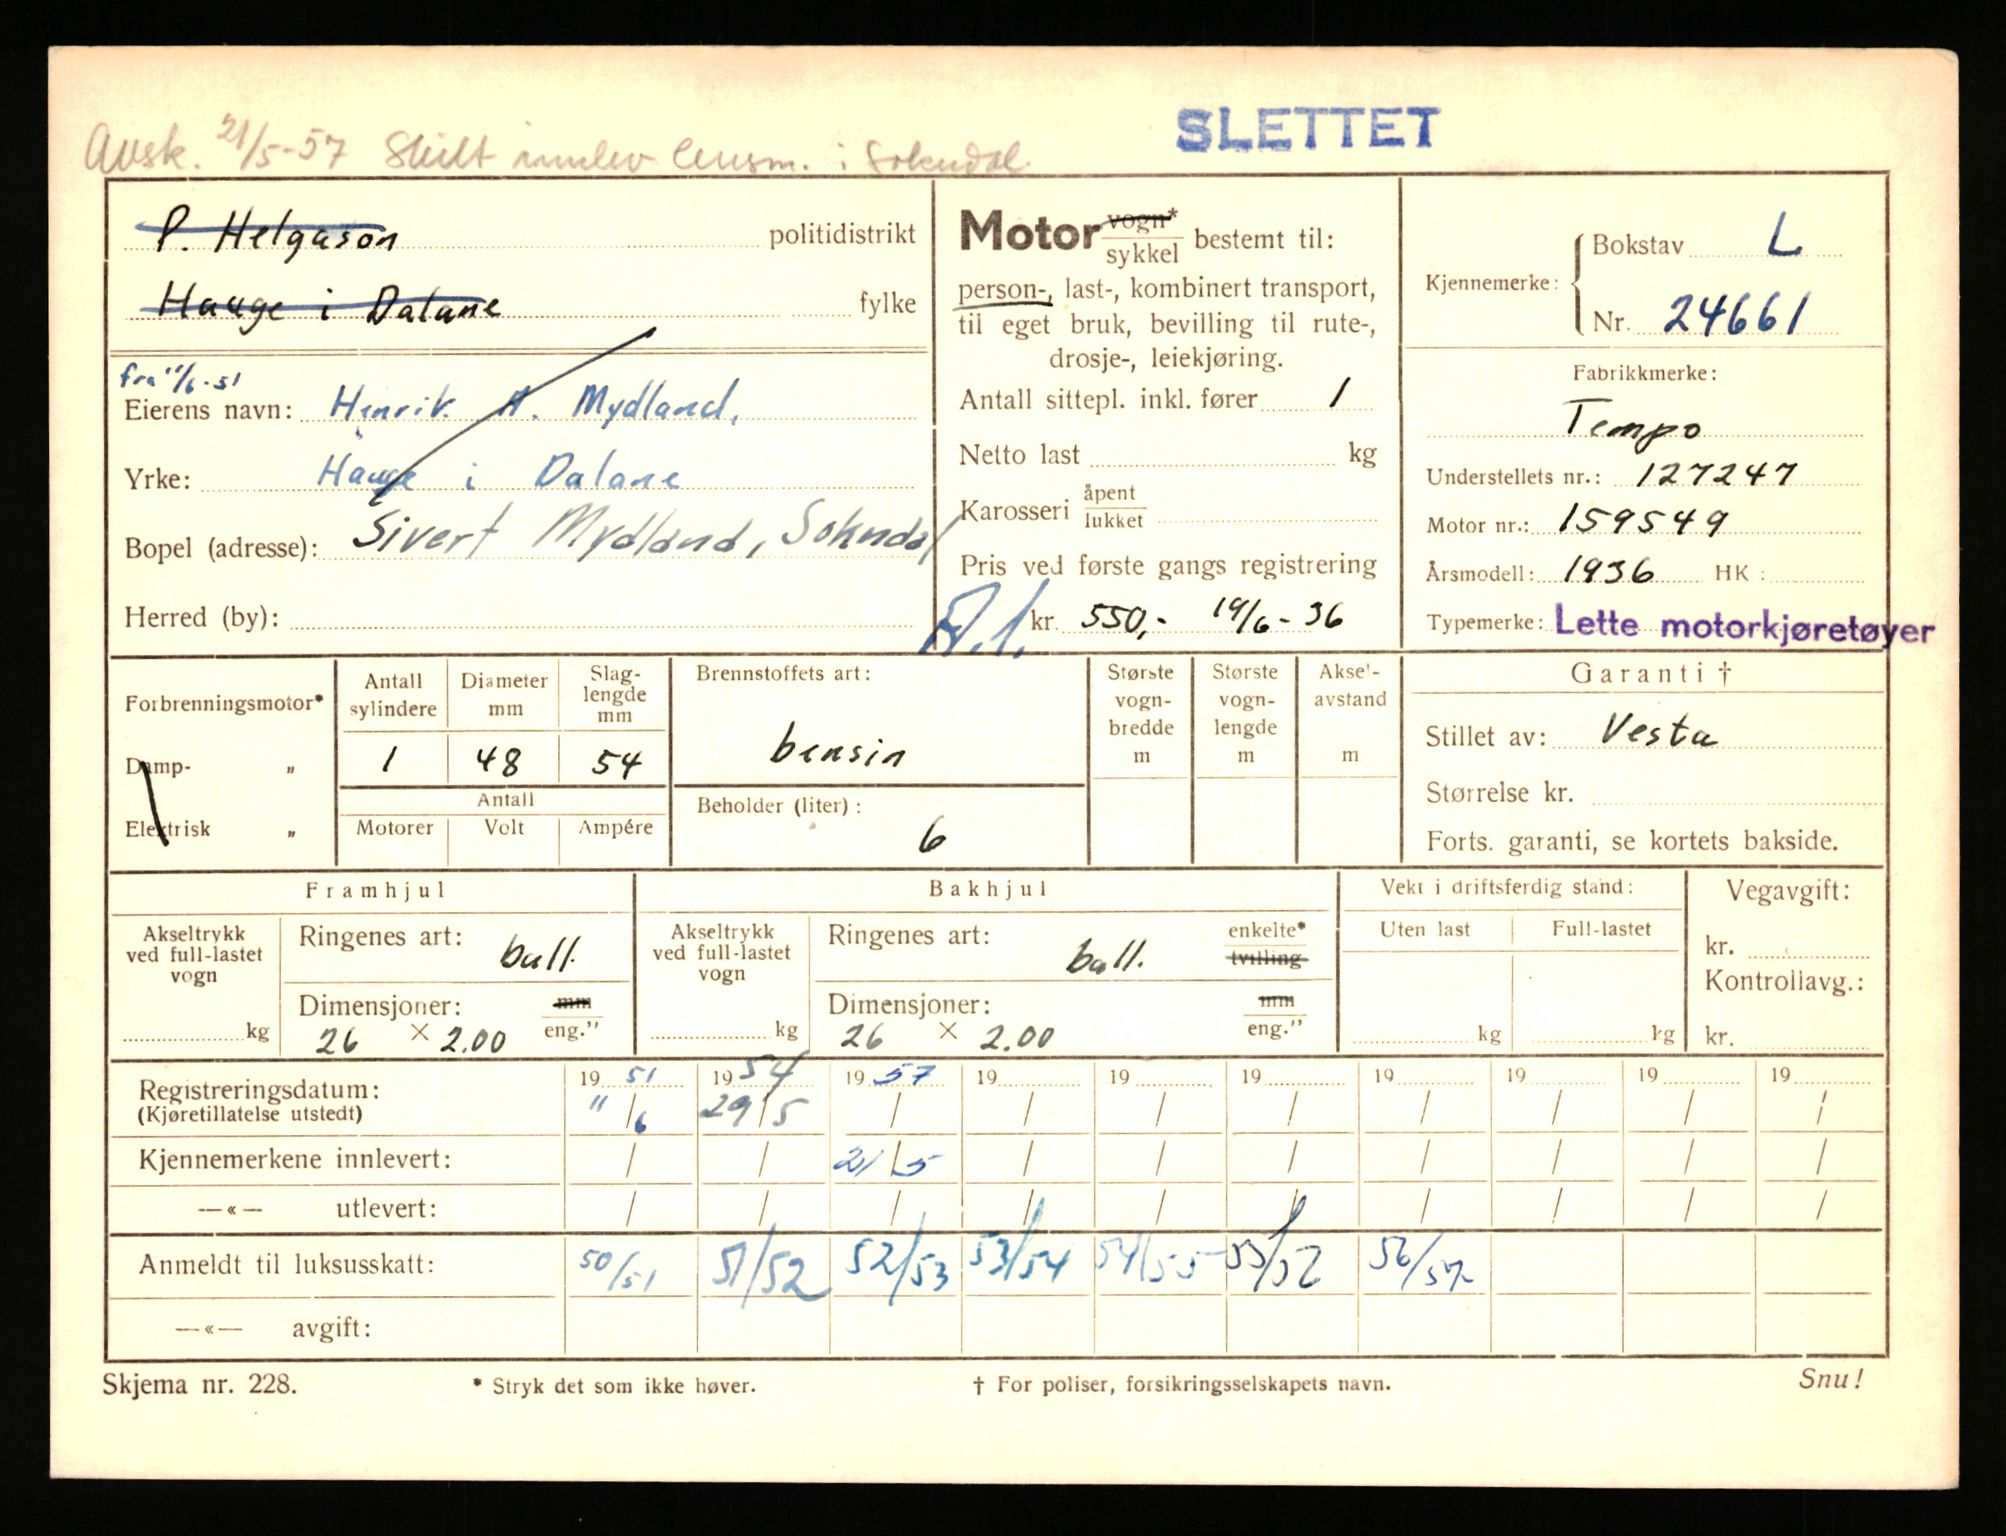 SLETTET
Avsk. 21/5-57 Skilt innlev lensm. i Sokndal
P. Helgason politidistrikt
Hauge i Dalane fylke
fra 11/6-51
Eierens navn: Henrik A. Mydland,
Yrke: Hauge i Dalane
Bopel (adresse): Sivert Mydland, Sokndal
Herred (by):
Motor vogn* sykkel bestemt til:
person-, last-, kombinert transport,
til eget bruk, bevilling til rute-,
drosje-, leiekjøring.
Antall sittepl. inkl. fører 1
Netto last kg
Karosseri åpent lukket
Pris ved første gangs registrering
kr. 550,- 19/6-36
Kjennemerke: Bokstav L
Nr. 24661
Fabrikkmerke:
Tempo
Understellets nr.: 127247
Motor nr.: 159549
Årsmodell: 1936 HK:
Typemerke: Lette motorkjøretøyer
Forbrenningsmotor*
Damp- „
Elektrisk „
Antall sylindere Diameter mm Slag-lengde mm
1 48 54
Antall
Motorer Volt Ampére
Brennstoffets art:
bensin
Beholder (liter):
6
Største vogn-bredde m
Største vogn-lengde m
Aksel-avstand m
Garanti †
Stillet av: Vesta
Størrelse kr.
Forts. garanti, se kortets bakside.
Framhjul
Akseltrykk ved full-lastet vogn kg
Ringenes art: ball.
Dimensjoner: mm eng."
26 × 2.00
Bakhjul
Akseltrykk ved full-lastet vogn kg
Ringenes art: ball. enkelte* tvilling
Dimensjoner: mm eng."
26 × 2.00
Vekt i driftsferdig stand:
Uten last Full-lastet
kg kg
Vegavgift:
kr.
Kontrollavg.:
kr.
Registreringsdatum: 19 51 19 54 19 57 19 19 19 19 19 19 19
(Kjøretillatelse utstedt) 11/6 29/5 / / / / / / / /
Kjennemerkene innlevert: / / 21/5 / / / / / / /
—«— utlevert: / / / / / / / / / /
Anmeldt til luksusskatt: 50/51 51/52 52/53 53/54 54/55 56/57
—«— avgift:
Skjema nr. 228. * Stryk det som ikke høver. † For poliser, forsikringsselskapets navn. Snu!